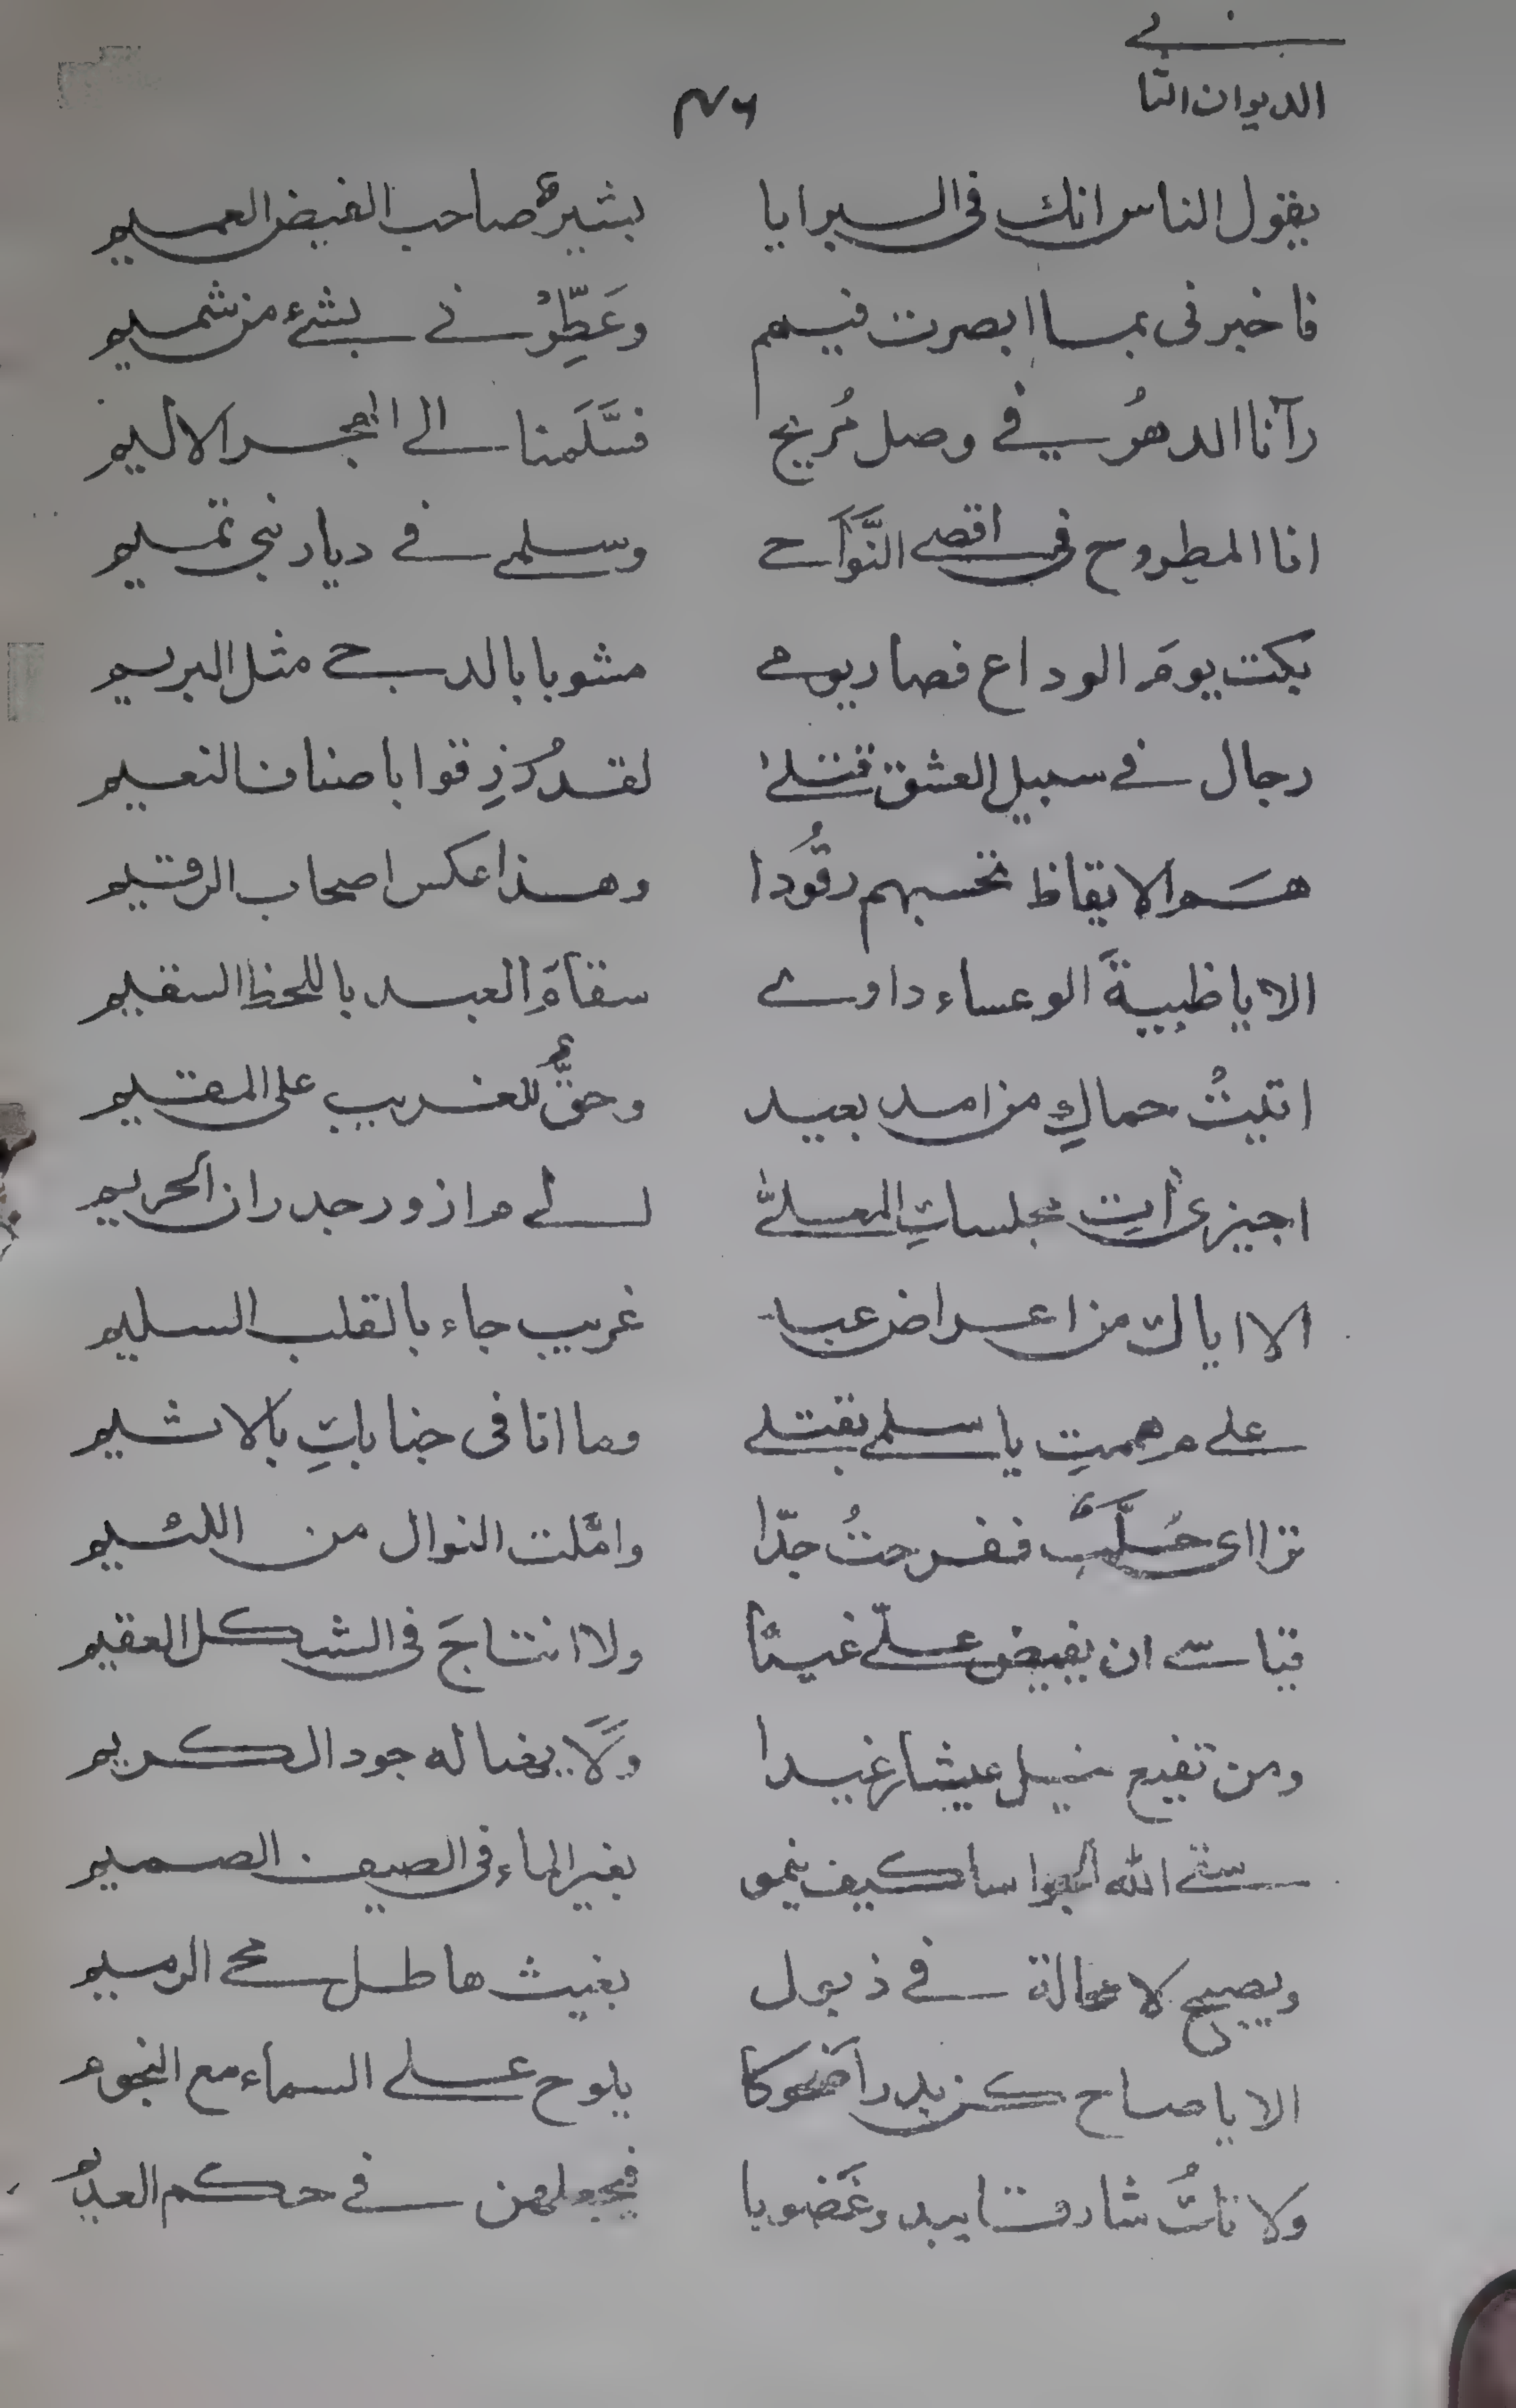 الديوان الثاني
يقول الناس انك فى البرايا بشيرٌ صاحب الفيض العميم
فاخبرنى بما ابصرت فيهم وعَطِّرْنے بشئ من شميم
رآنا الدهرُ فے وصل مُريح فسَلَّمنا الى الهجر الاليم
انا المطروح فى اقصے النَّوَاحے وسلمى فے ديار بنى تميم
بكت يومَ الوداع فصار يومے مشوبا بالدجے مثل البريم
رجال فے سبيل العشق قتلےٰ لقد رُزِقوا باصناف النعيم
همُ الايقاظ تحسبهم رقُودا وهذا عكس اصحاب الرقيم
الا يا ظبيةَ الوعساء داوے سقامَ العبد باللحظ السقيم
اتيتُ حماكِ من امد بعيد وحقٌّ للغريب على المقيم
اجيزى أتِ مجلساتِ المعلےّٰ لے م ازور جدران الحريم
الا اياك من اعراض عبد غريب جاء بالقلب السليم
علے م هممتِ يا سلمے بقتلے وما انا فى جنابكِ بالاثيم
تراأى خُلَّبٌ ففرحتُ جدّا وامَّلت النوال من اللئيم
قياسے ان يفيض علےّ غيثًا ولا انتاجَ فى الشكل العقيم
ومن تفدم ينيل عيشا رغيدا ولَا يغتاله جود الكريم
سقے الله كيف ينمو بغير الماء فى الصيف الصميم
ويصبح لا محالة فے ذبول بغيث هاطل محے الرميم
الا يا صاح كن بدرا ضحوكا يلوح علے السماء مع النجوم
ولا تكُ شارقا يبدو غَضوبا فيجعلهن فے حكم العديم